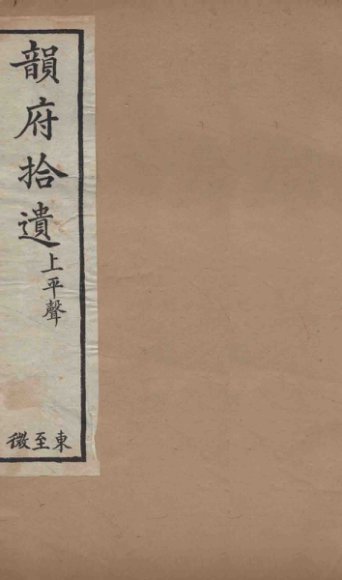 韻府拾遺
上平聲
東至微